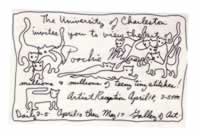 The University of Charleston
invites you to view the art
ooshi
millions & millions of teeny tiny stitches
Artist Reception April 2-5 pm
Daily 2-5 April thru May 17 Gallery of Art